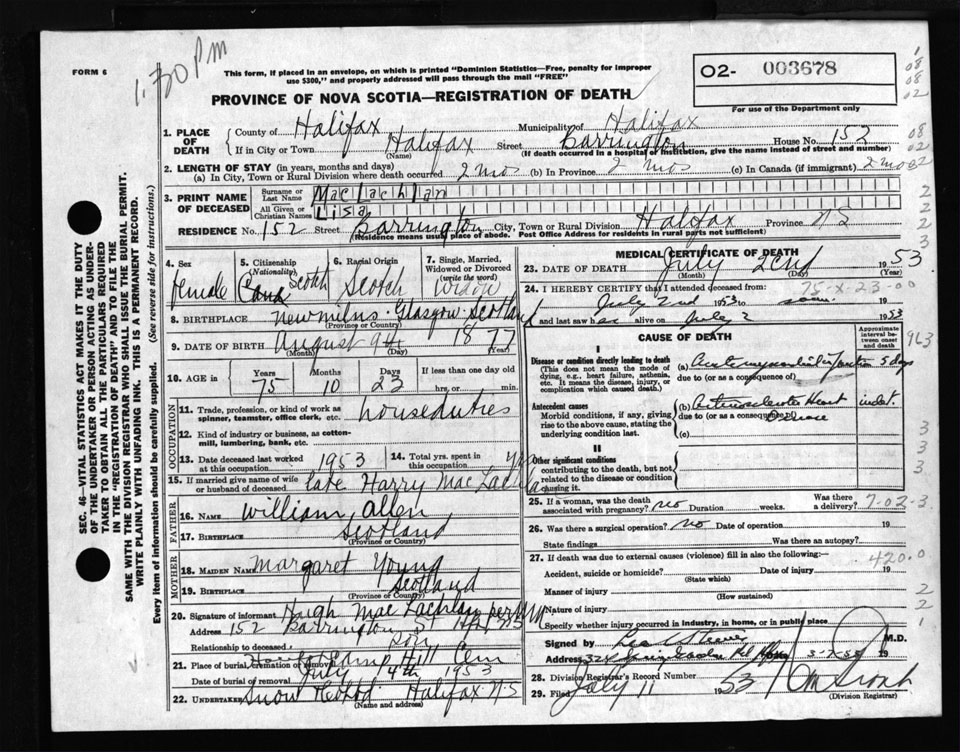 1.30 PM
FORM 6
This form, if placed in an envelope, on which is printed "Dominion Statistics—Free, penalty for improper
use $300," and properly addressed will pass through the mail "FREE"
PROVINCE OF NOVA SCOTIA—REGISTRATION OF DEATH
02- 003678
For use of the Department only
1. PLACE OF DEATH
County of Halifax Municipality of Halifax
If in City or Town Halifax Street Barrington House No. 153
(Name) (If death occurred in a hospital or institution, give the name instead of street and number)
2. LENGTH OF STAY (in years, months and days)
(a) In City, Town or Rural Division where death occurred 2 mos (b) In Province 2 mos (c) In Canada (if immigrant) 2 mo
3. PRINT NAME OF DECEASED
Surname or Last Name MacLachlan
All Given or Christian Names Lisa
RESIDENCE No. 152 Street Barrington City, Town or Rural Division Halifax Province NS
(Residence means usual place of abode. Post Office Address for residents in rural parts not sufficient)
4. Sex female
5. Citizenship (Nationality) Scotch
6. Racial Origin Scotch
7. Single, Married, Widowed or Divorced (write the word) Widow
8. BIRTHPLACE newmilns - Glasgow - Scotland
(Province or Country)
9. DATE OF BIRTH August 9th 1877
(Month) (Day) (Year)
10. AGE in Years 75 Months 10 Days 23 If less than one day old hrs. or min.
OCCUPATION
11. Trade, profession, or kind of work as spinner, teamster, office clerk, etc. houseduties
12. Kind of industry or business, as cotton-mill, lumbering, bank, etc.
13. Date deceased last worked at this occupation 1953
14. Total yrs. spent in this occupation
15. If married give name of wife or husband of deceased late Harry MacLachlan
FATHER
16. NAME William Allen
17. BIRTHPLACE Scotland
(Province or Country)
MOTHER
18. MAIDEN NAME Margaret Young
19. BIRTHPLACE Scotland
(Province or Country)
20. Signature of informant Hugh MacLachlan per
Address 152 Barrington St Hfx NS
Relationship to deceased son
21. Place of burial, cremation or removal Camp Hill Cem
Date of burial or removal July 4th 1953
22. UNDERTAKER Snow Halifax NS
(Name and address)
MEDICAL CERTIFICATE OF DEATH
23. DATE OF DEATH July 2nd 1953
(Month) (Day) (Year)
24. I HEREBY CERTIFY that I attended deceased from: 75-X-23-00
July 2nd 1953 to same 19
and last saw her alive on July 2 1953
CAUSE OF DEATH
Approximate interval between onset and death
963
I
Disease or condition directly leading to death
(This does not mean the mode of dying, e.g., heart failure, asthenia, etc. It means the disease, injury, or complication which caused death.)
(a) Acute myocardial infarction 5 days
due to (or as a consequence of)
Antecedent causes
Morbid conditions, if any, giving rise to the above cause, stating the underlying condition last.
(b) Arteriosclerotic Heart Disease indet.
due to (or as a consequence of)
(c)
II
Other significant conditions
contributing to the death, but not related to the disease or condition causing it.
25. If a woman, was the death associated with pregnancy? no Duration weeks. Was there a delivery? 7-02-3
26. Was there a surgical operation? no Date of operation 19
State findings Was there an autopsy?
27. If death was due to external causes (violence) fill in also the following:— 420.0
Accident, suicide or homicide? Date of injury 19
(State which)
Manner of injury
(How sustained)
Nature of injury
Specify whether injury occurred in industry, in home, or in public place
Signed by M.D.
Address 324 Spring Garden Rd 19
28. Division Registrar's Record Number
29. Filed July 11 1953
(Division Registrar)
SEC. 46—VITAL STATISTICS ACT MAKES IT THE DUTY
OF THE UNDERTAKER OR PERSON ACTING AS UNDER-
TAKER TO OBTAIN ALL THE PARTICULARS REQUIRED
IN THE "REGISTRATION OF DEATH" AND TO FILE THE
SAME WITH THE DIVISION REGISTRAR WHO SHALL ISSUE THE BURIAL PERMIT.
WRITE PLAINLY WITH UNFADING INK. THIS IS A PERMANENT RECORD.
Every item of information should be carefully supplied. (See reverse side for instructions.)